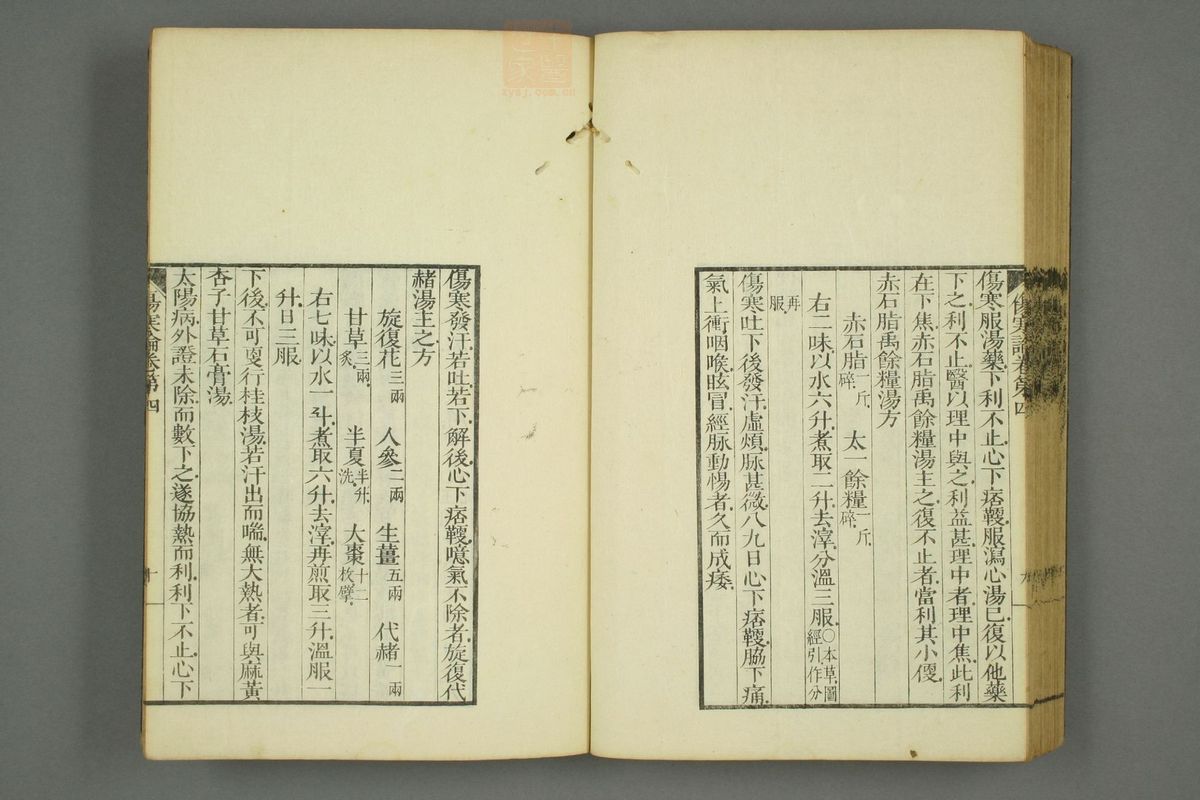 傷寒論卷第四
傷寒服湯藥下利不止心下痞鞕服瀉心湯已復以他藥
下之利不止醫以理中與之利益甚理中者理中焦此利
在下焦赤石脂禹餘糧湯主之復不止者當利其小便
赤石脂禹餘糧湯方
赤石脂一斤碎 太一餘糧一斤碎
右二味以水六升煮取二升去滓分溫三服○本草圖經引作分
再服
傷寒吐下後發汗虛煩脈甚微八九日心下痞鞕脇下痛
氣上衝咽喉眩冒經脈動惕者久而成痿
傷寒發汗若吐若下解後心下痞鞕噫氣不除者旋復代
赭湯主之方
旋復花三兩 人參二兩 生薑五兩 代赭一兩
甘草三兩炙 半夏半升洗 大棗十二枚擘
右七味以水一斗煮取六升去滓再煎取三升溫服一
升日三服
下後不可更行桂枝湯若汗出而喘無大熱者可與麻黃
杏子甘草石膏湯
太陽病外證未除而數下之遂協熱而利利下不止心下
傷寒論卷第四
十
zysj.com.cn